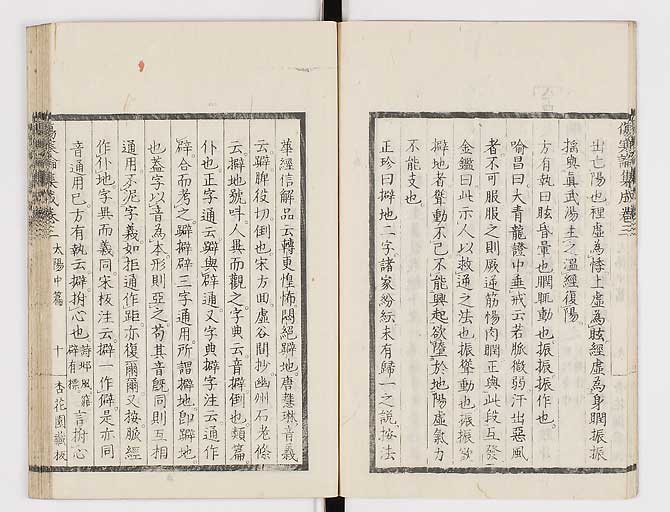 傷寒論集成卷三
出亡陽也裡虛為悸上虛為眩經虛為身瞤振振
搖與真武湯主之溫經復陽。
方有執曰眩昏暈也瞤瞤動也振振振作也。
喻昌曰大青龍證中垂戒云若脈微弱汗出惡風
者不可服服之則厥逆筋惕肉瞤正與此段互發
金鑑曰此示人以救逆之法也振聳動也振振欲
擗地者聳動不已不能興起欲墮於地陽虛氣力
不能支也
正珍曰擗地二字諸家紛紜未有歸一之說按法
華經信解品云轉更惶怖悶絕躃地。唐慧琳音義
云躃脾役切倒也宋方回虛谷間抄幽州石老條
云擗地號呼人異而觀之字典云音擗倒也類篇
仆也正字通云躃與辟通又字典擗字注云通作
辟合而考之躃擗辟三字通用所謂擗地即躃地
也蓋字以音為本形則亞之苟其音旣同則互相
通用不泥字義如拒通作距亦復爾爾又按脈經
作仆地字異而義同宋板注云擗一作僻是亦同
音通用已方有執云擗拊心也詩邶風篇辟有摽言拊心
傷寒論集成卷三 太陽中篇 十 杏花園藏板